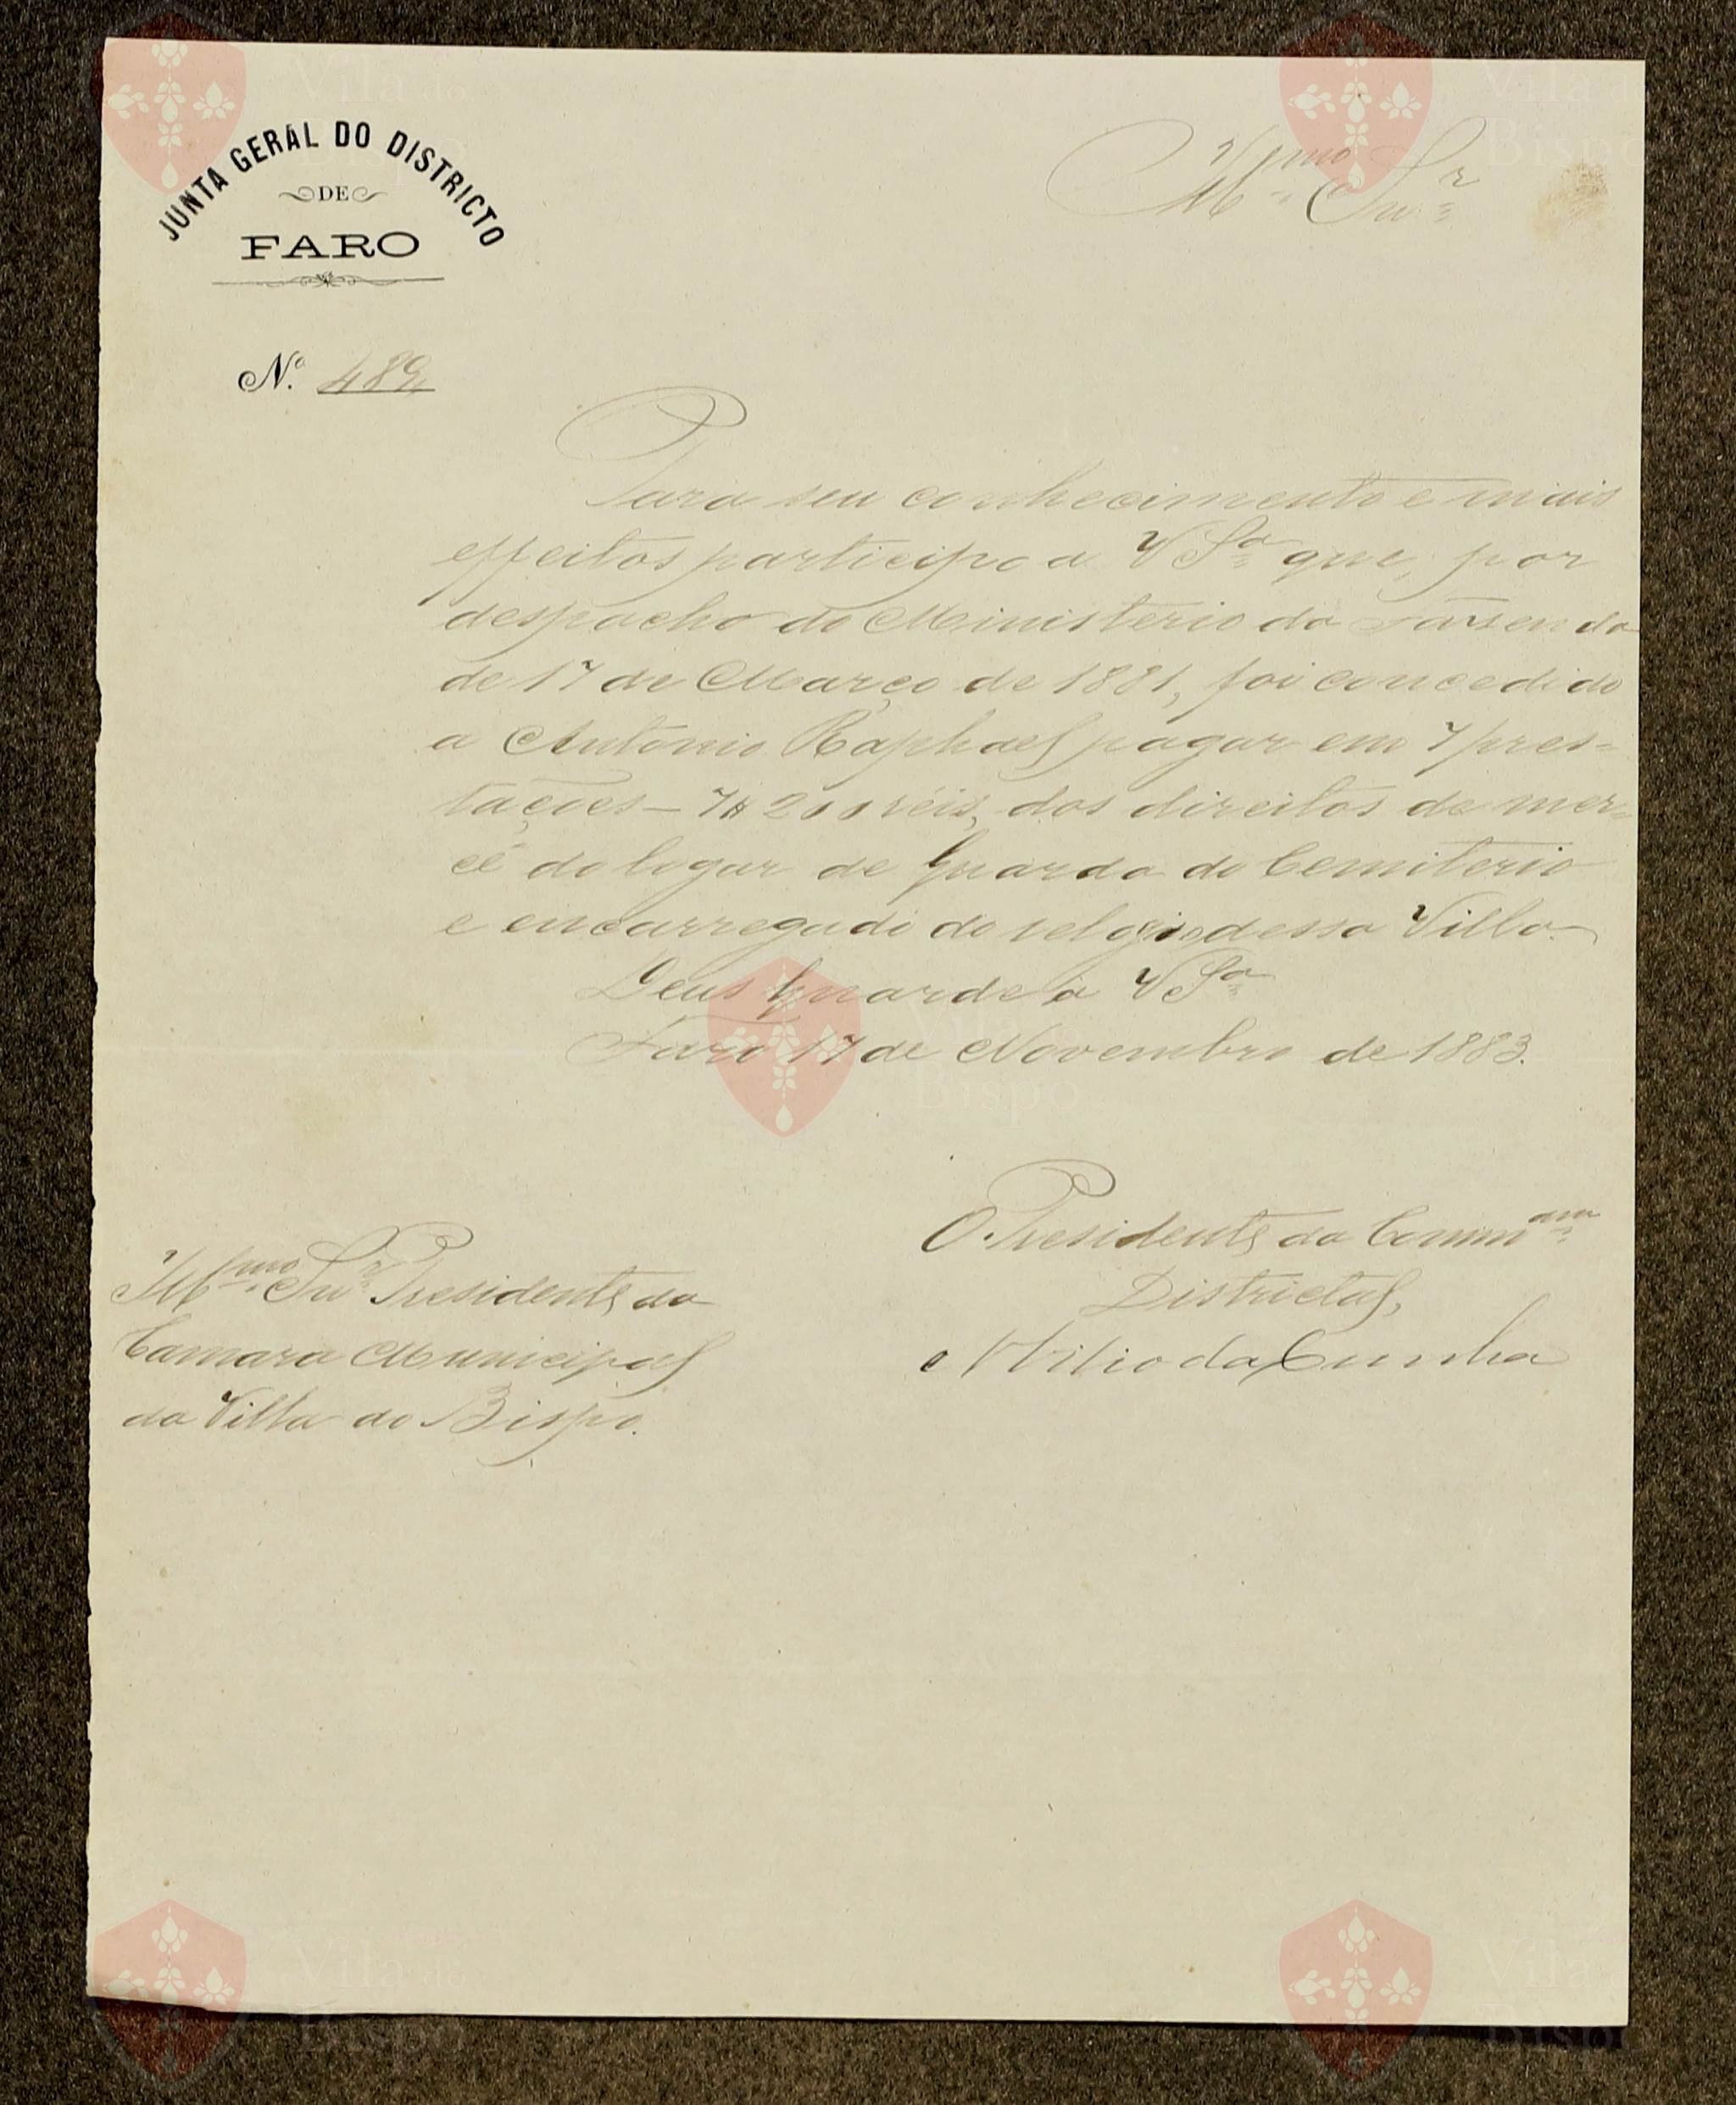 JUNTA GERAL DO DISTRICTO
DE
FARO
Illmo Snr
N.º 489
Para seu conhecimento e mais
effeitos participo a V Sa que, por
despacho do Ministerio da Fasenda
de 17 de Março de 1881, foi concedido
a Antonio Raphael pagar em 7 pres-
tações - 7$200 réis, dos direitos de mer-
cê do logar de Guarda do Cemiterio
e encarregado do relogio dessa Villa.
Deus Guarde a V Sa
Faro 17 de Novembro de 1883.
O Presidente da Commam
Districtal,
da Cunha
Illmo Snr Presidente da
Camara Municipal
da Villa do Bispo.
Vila do
Bispo